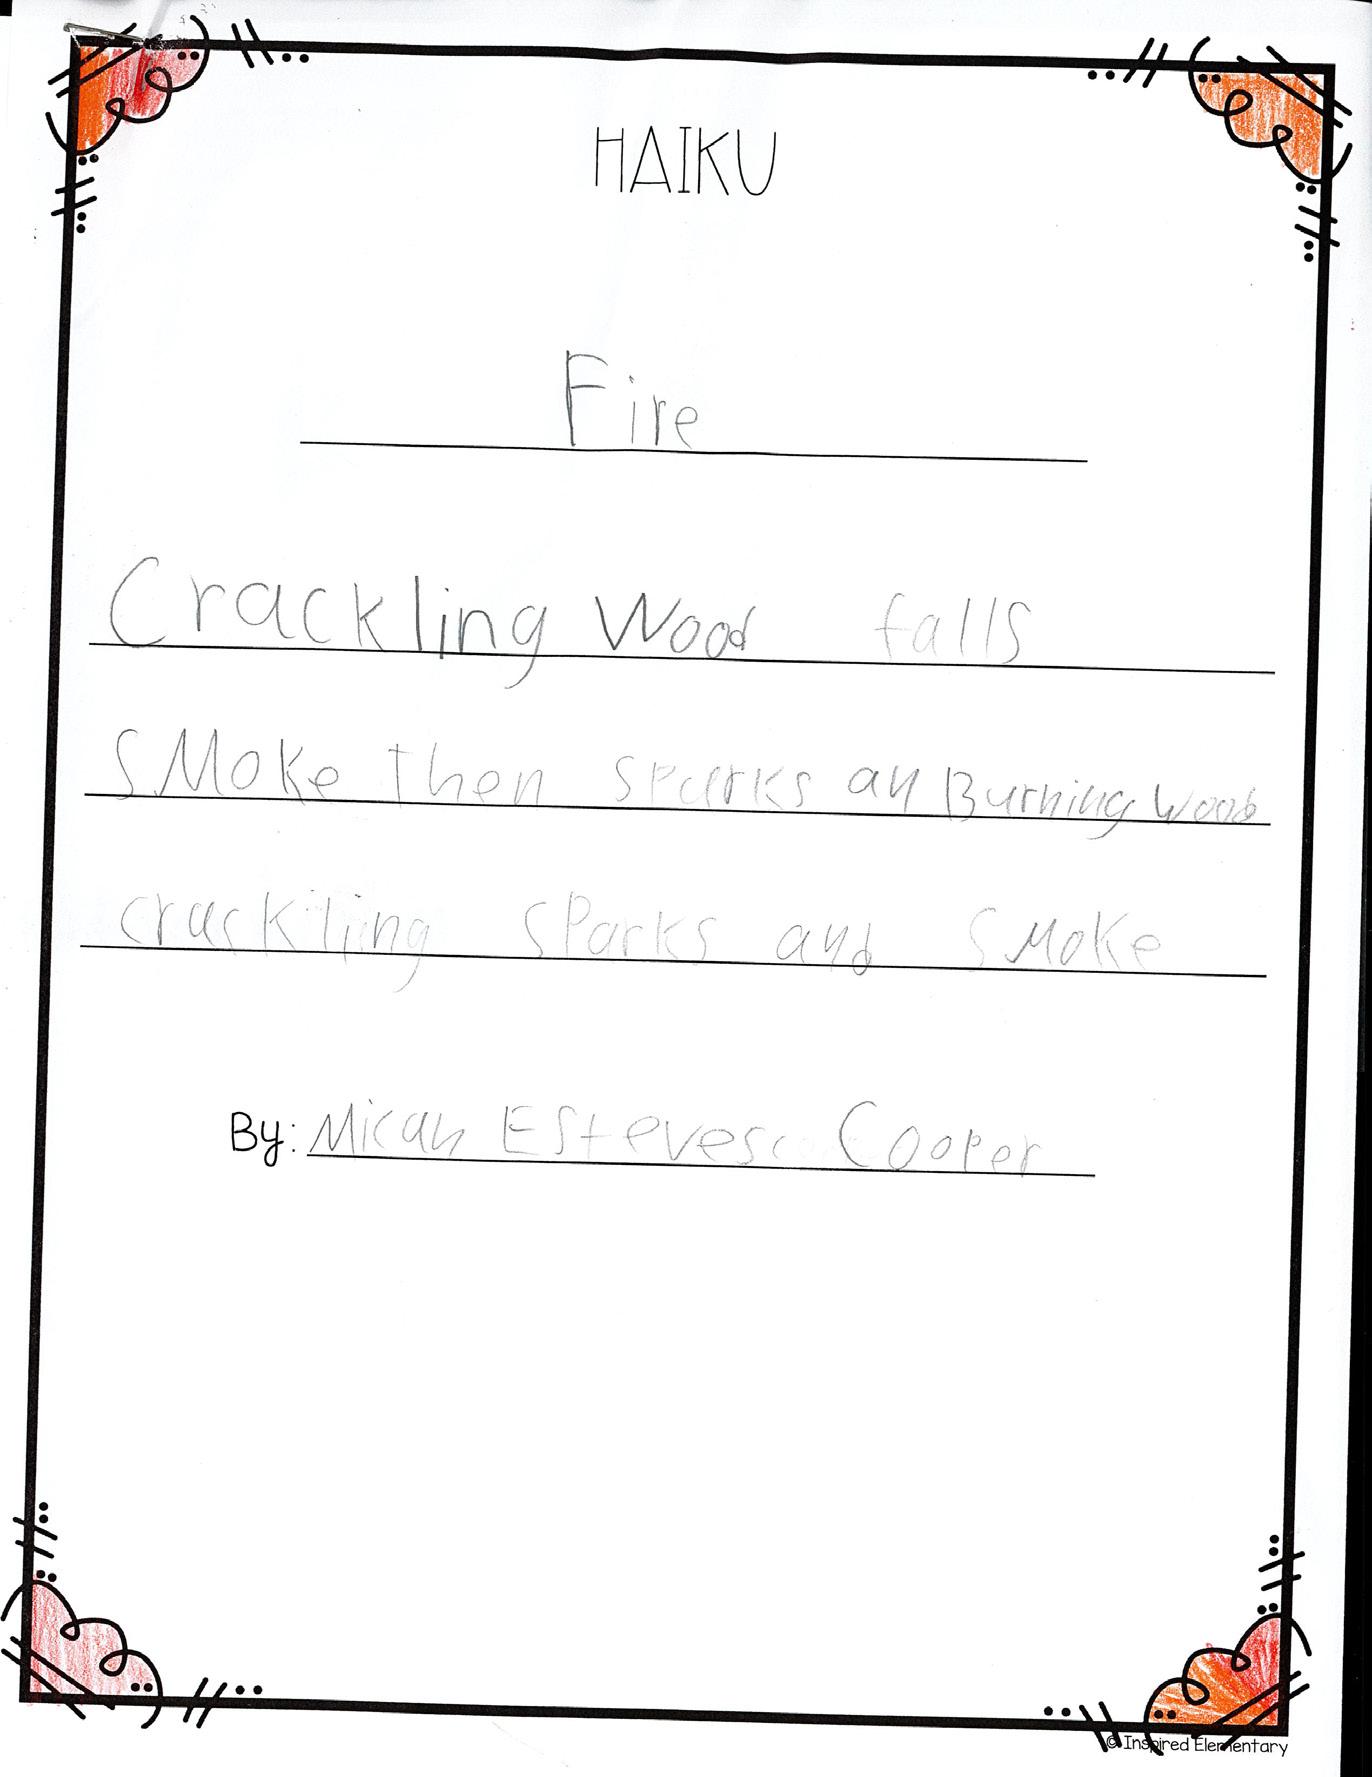 HAIKU
Fire
Crackling Wood falls
SMoke then sparks an Burning Wood
crackling sParks and SMoke
By: Micah Esteves Cooper
© Inspired Elementary